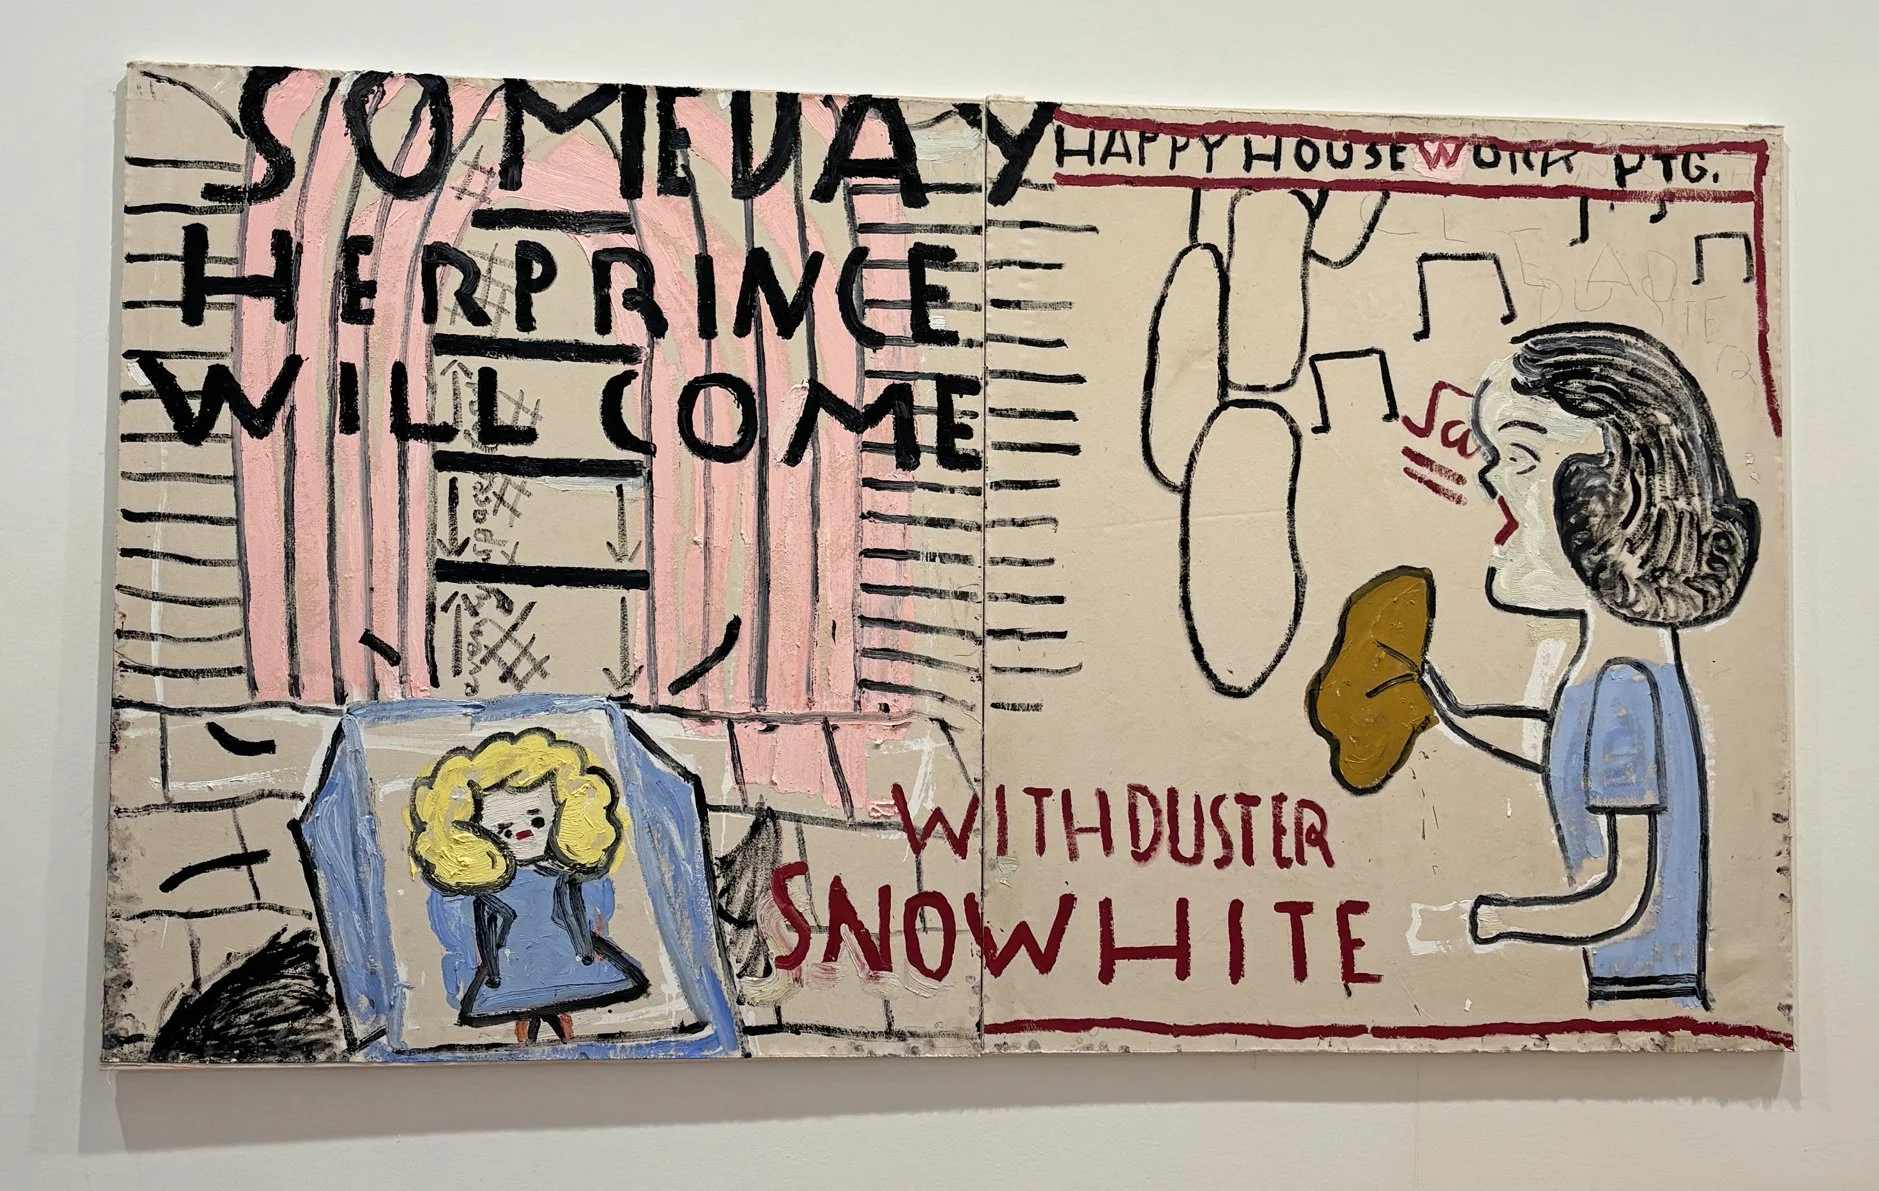 SOMEDAY
HER PRINCE
WILL COME
HAPPY HOUSEWORK PTG.
WITH DUSTER
SNOWHITE